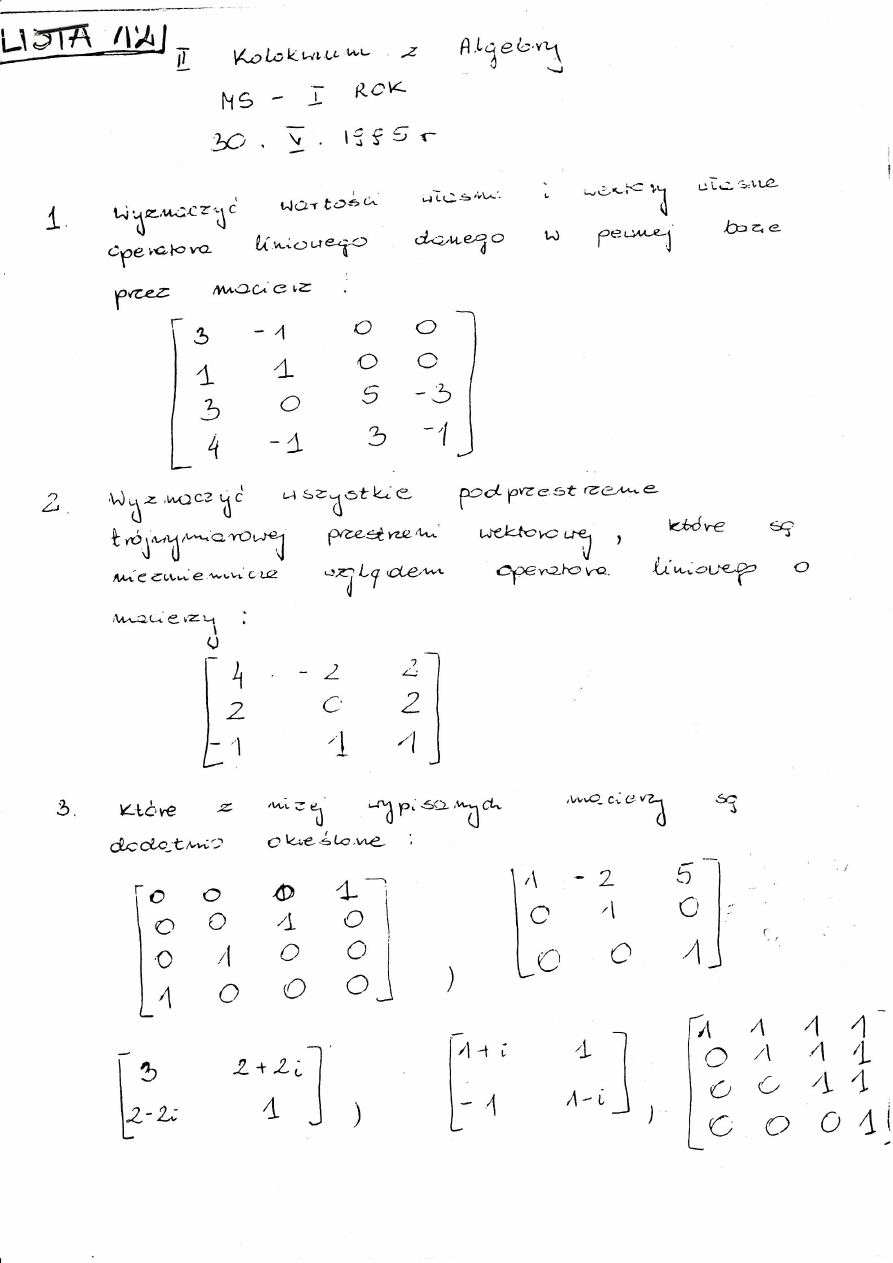 LISTA 12
II Kolokwium z Algebry
MS - I ROK
30. V. 1995 r
1. Wyznaczyć wartości własne i wektory własne
operatora liniowego danego w pewnej bazie
przez macierz :
3 -1 0 0
1 1 0 0
3 0 5 -3
4 -1 3 -1
2. Wyznaczyć wszystkie podprzestrzenie
trójwymiarowej przestrzeni wektorowej, które są
niezmiennicze względem operatora liniowego o
macierzy :
4 -2 2
2 0 2
-1 1 1
3. Które z niżej wypisanych macierzy są
dodatnio określone :
0 0 0 1
0 0 1 0
0 1 0 0
1 0 0 0 ,
1 -2 5
0 1 0
0 0 1
3 2+2i
2-2i 1 ,
1+i 1
-1 1-i ,
1 1 1 1
0 1 1 1
0 0 1 1
0 0 0 1